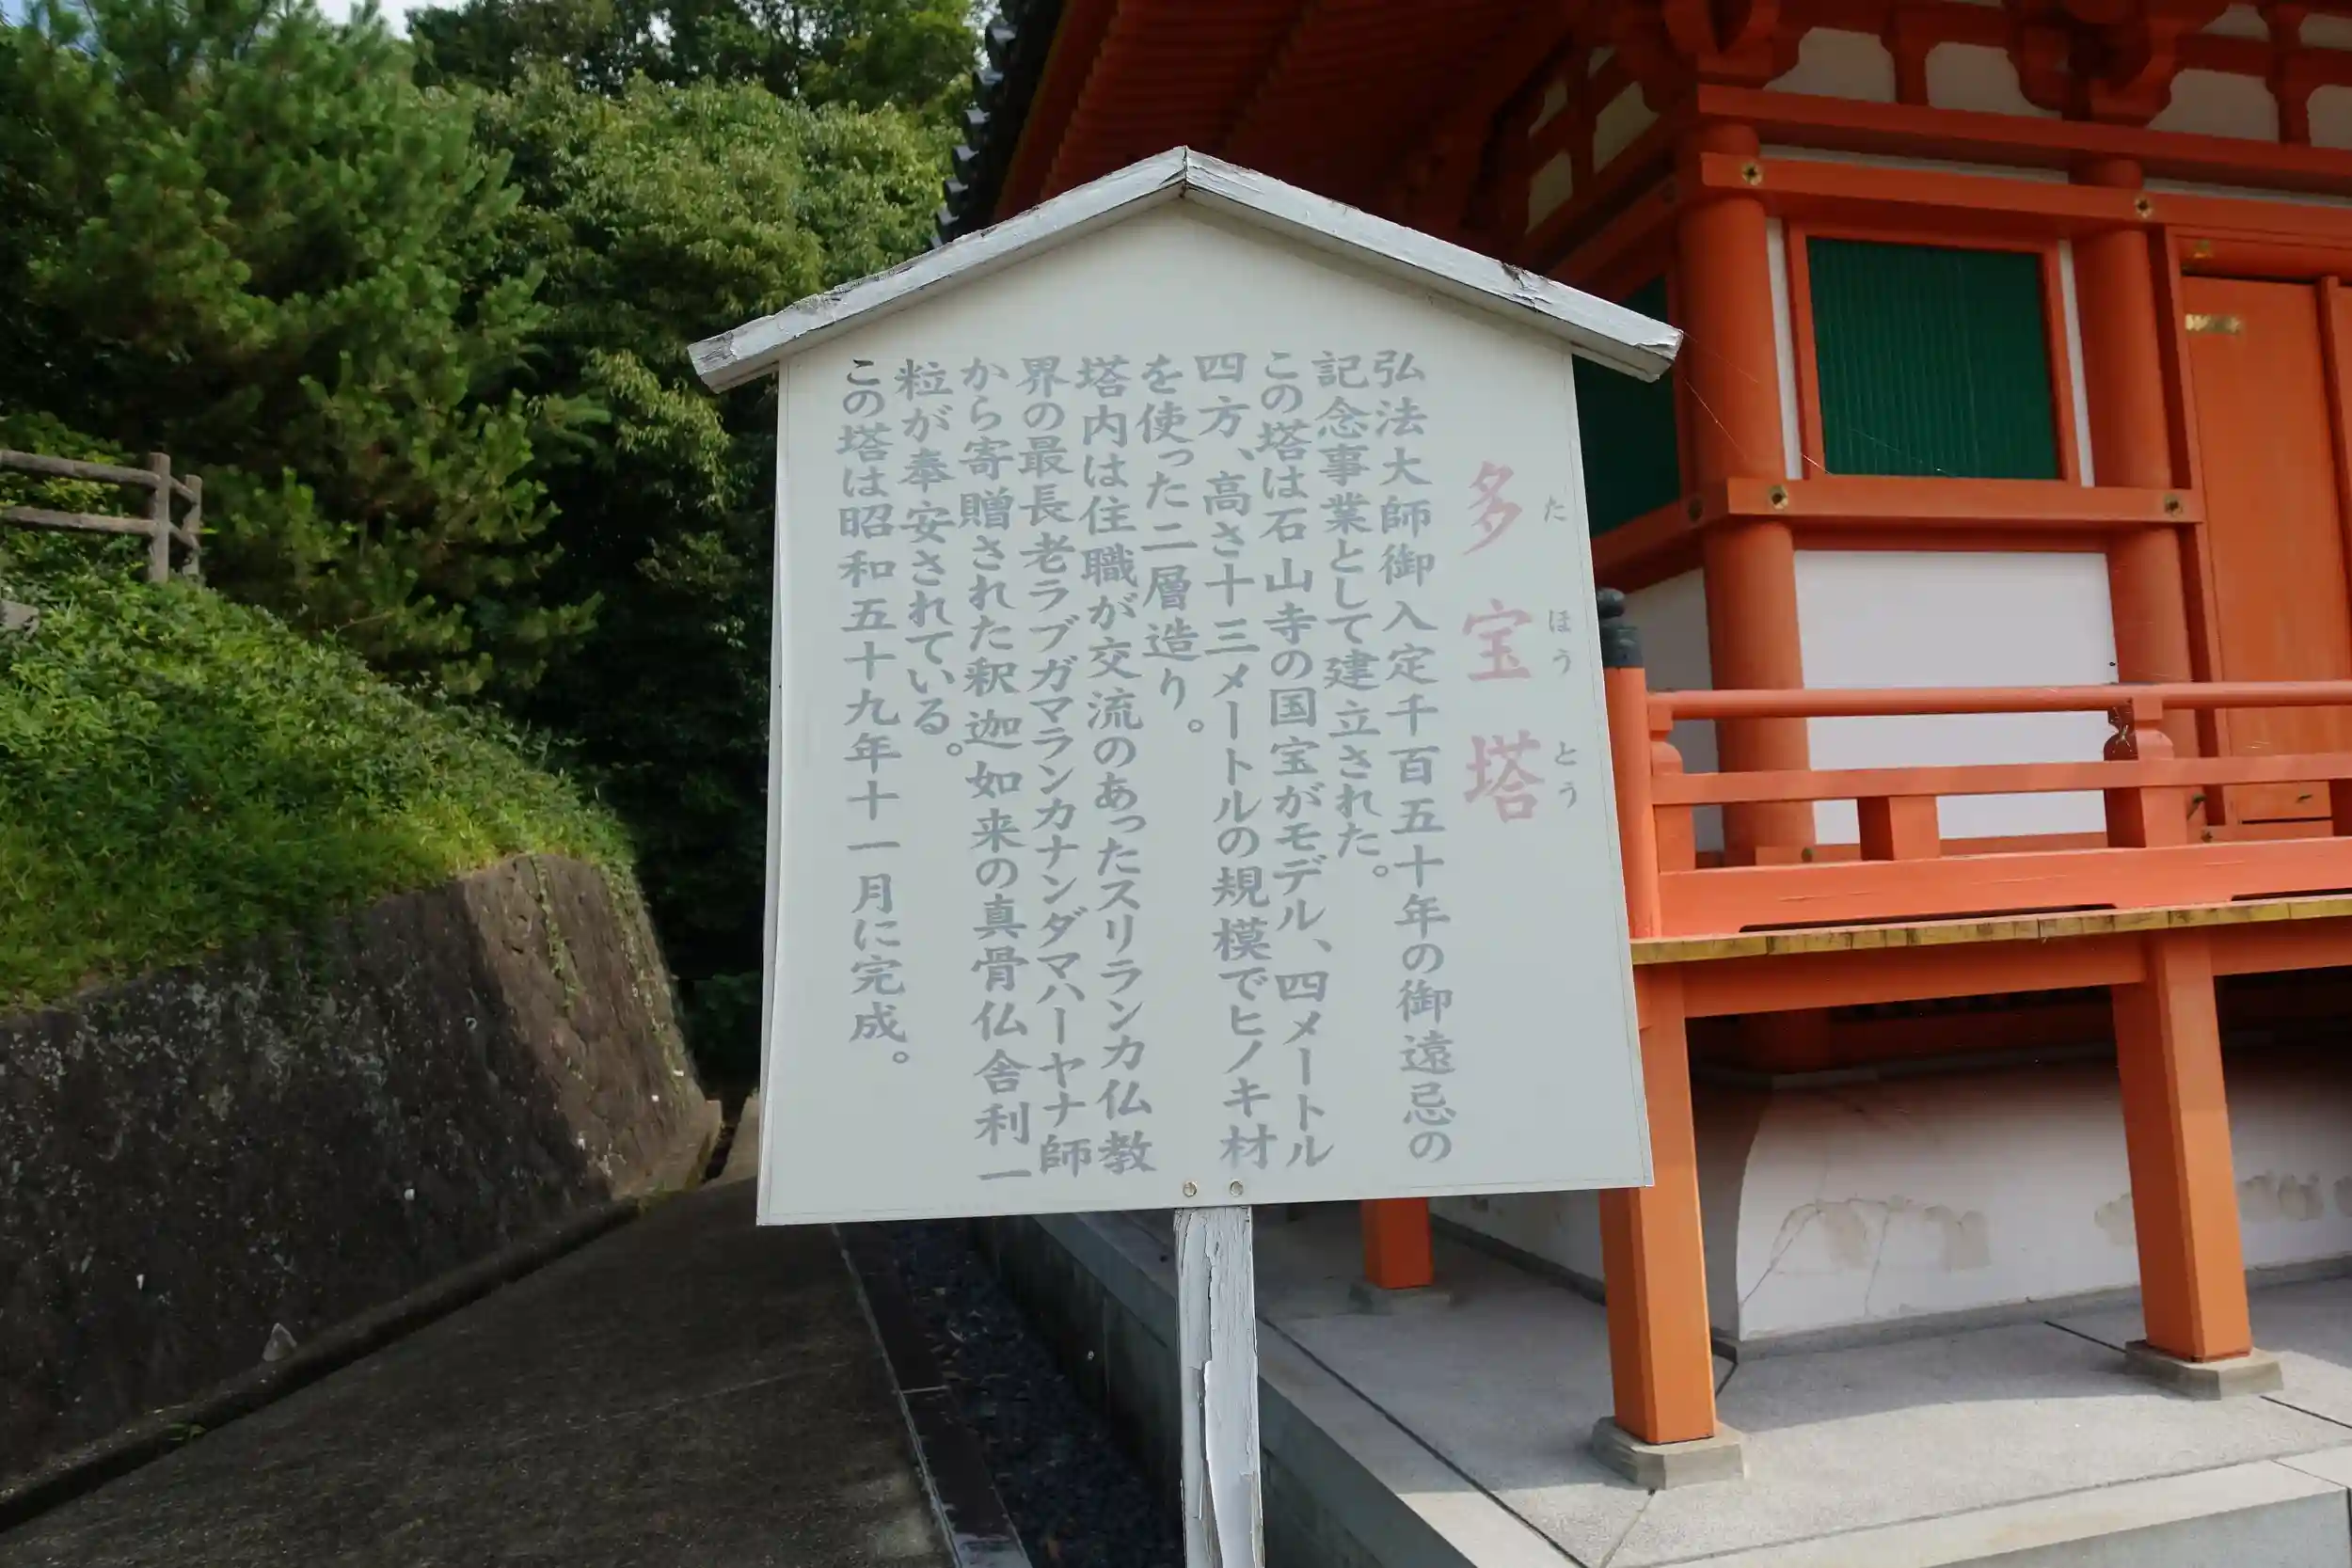 多宝塔
たほうとう
弘法大師御入定千百五十年の御遠忌の
記念事業として建立された。
この塔は石山寺の国宝がモデル、四メートル
四方、高さ十三メートルの規模でヒノキ材
を使った二層造り。
塔内は住職が交流のあったスリランカ仏教
界の最長老ラブガマランカナンダマハーヤナ師
から寄贈された釈迦如来の真骨仏舎利一
粒が奉安されている。
この塔は昭和五十九年十一月に完成。